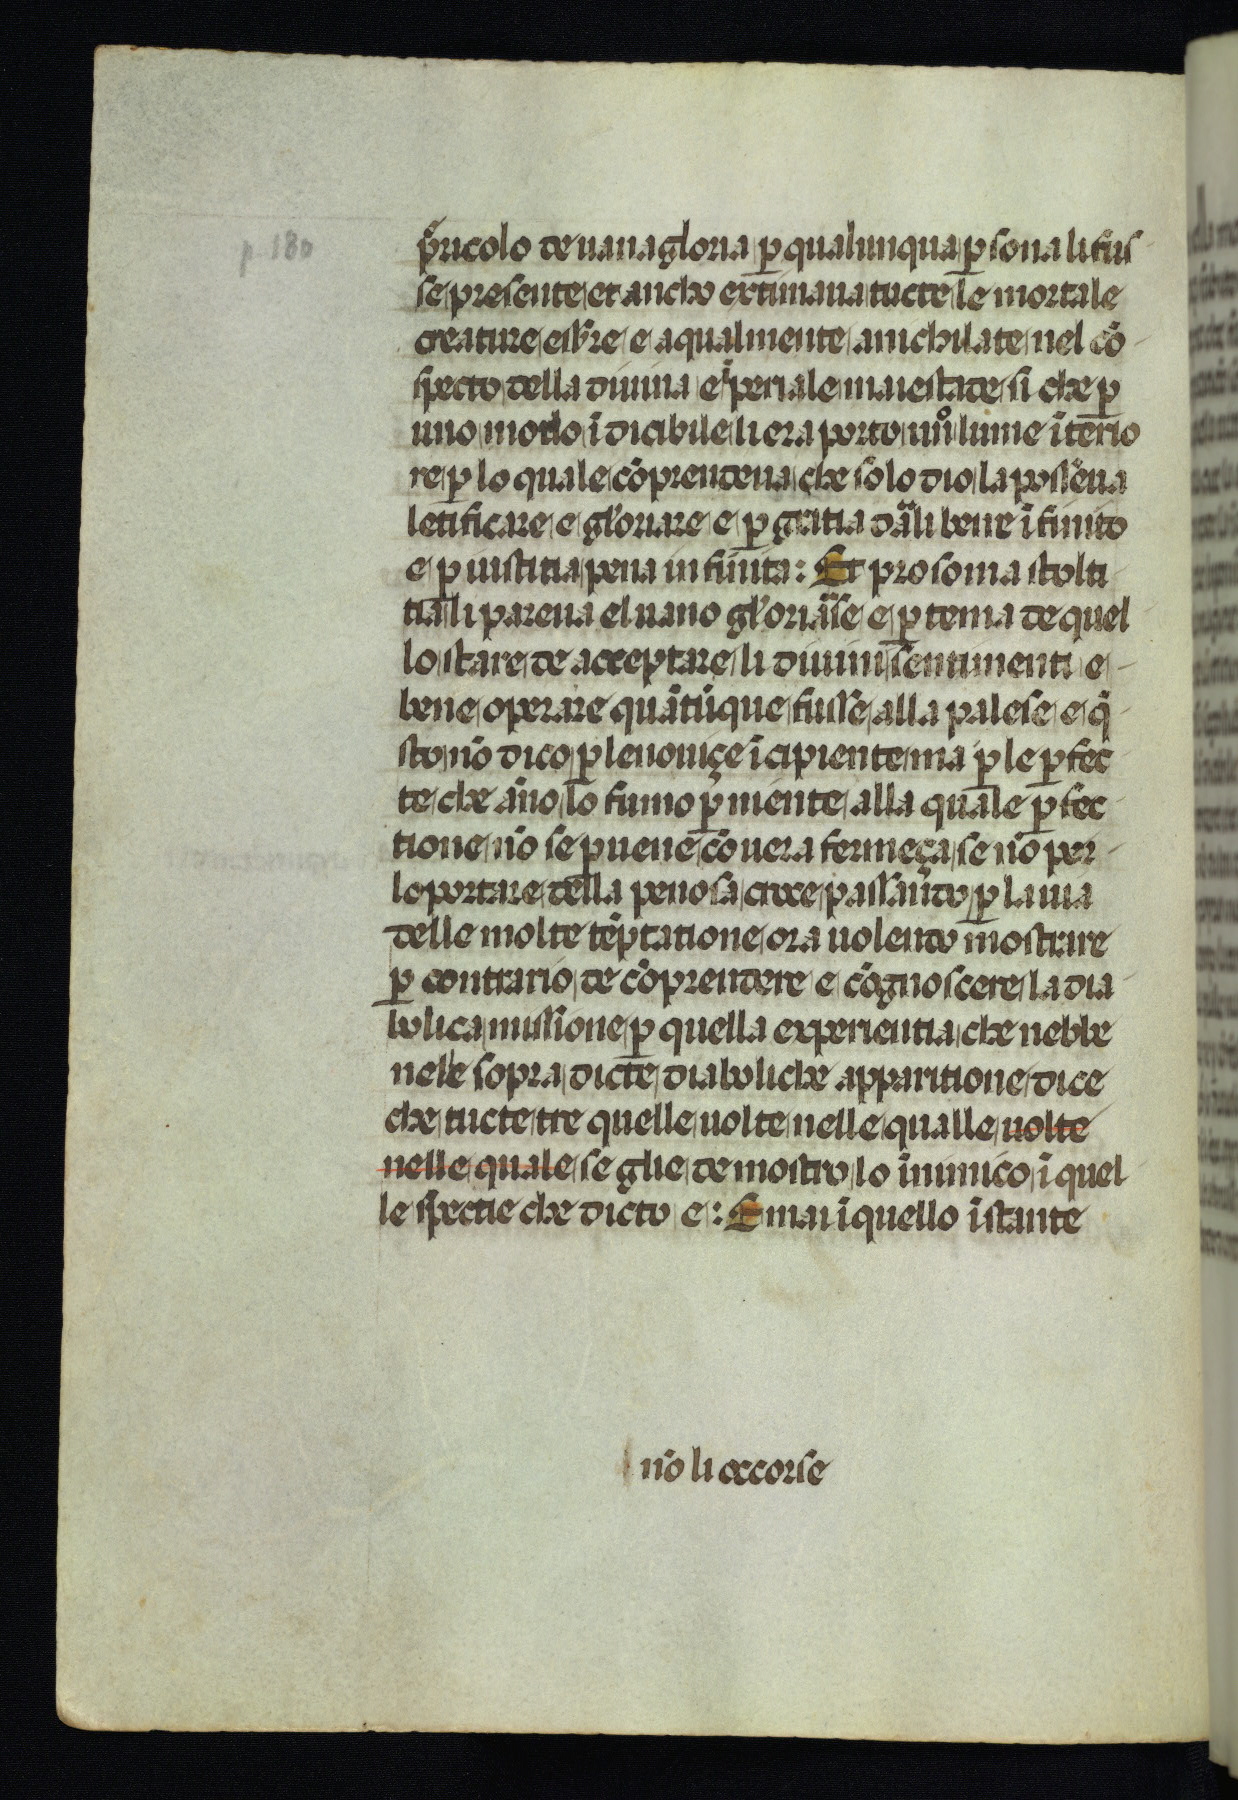 p. 180
p̃ricolo de uana gloria p̱ qualunqua p̱sona li fus-
se presente et ancho extimaua tucte le mortale
creature eśs̃re e aqualmente anichilate nel cō-
specto della diuina e īperiale maiestade si che p̱
uno modo īdicibile li era porto lume īterio
re p̱ lo quale cōprendeua che solo dio la posseua
letificare e gloriare e p̱ gratia darli bene īfinito
e p̱ iustitia pena infinita: Et pro soma stolti
tia li pareua el uano gloriarse e p̱ tema de quel
lo stare de acceptare li diuini sentimenti e-
bene operare quātūque fusse alla palese e q̄-
sto nō dico p̱ le nouiçe īcipiente ma p̱ le p̱fec-
te che āno lo fumo p̱ mente alla quale p̱fec-
tione nō se p̱uene cō uera fermeça se nō per-
lo portare della penosa croce passando p̱ la uia
delle molte tēptatione ora uolendo mostrare
p̱ contrario de cōprendere e cōgnoscere la dia-
bolica missione p̱ quella experientia che nebbe
nele sopra dicte diaboliche apparitione dice
che tucte tre quelle uolte nelle qualle uolte
nelle quale se glie demostro lo inimico ī quel
le spectie che dicto e: E mai ī quello īstante
nō li occorse